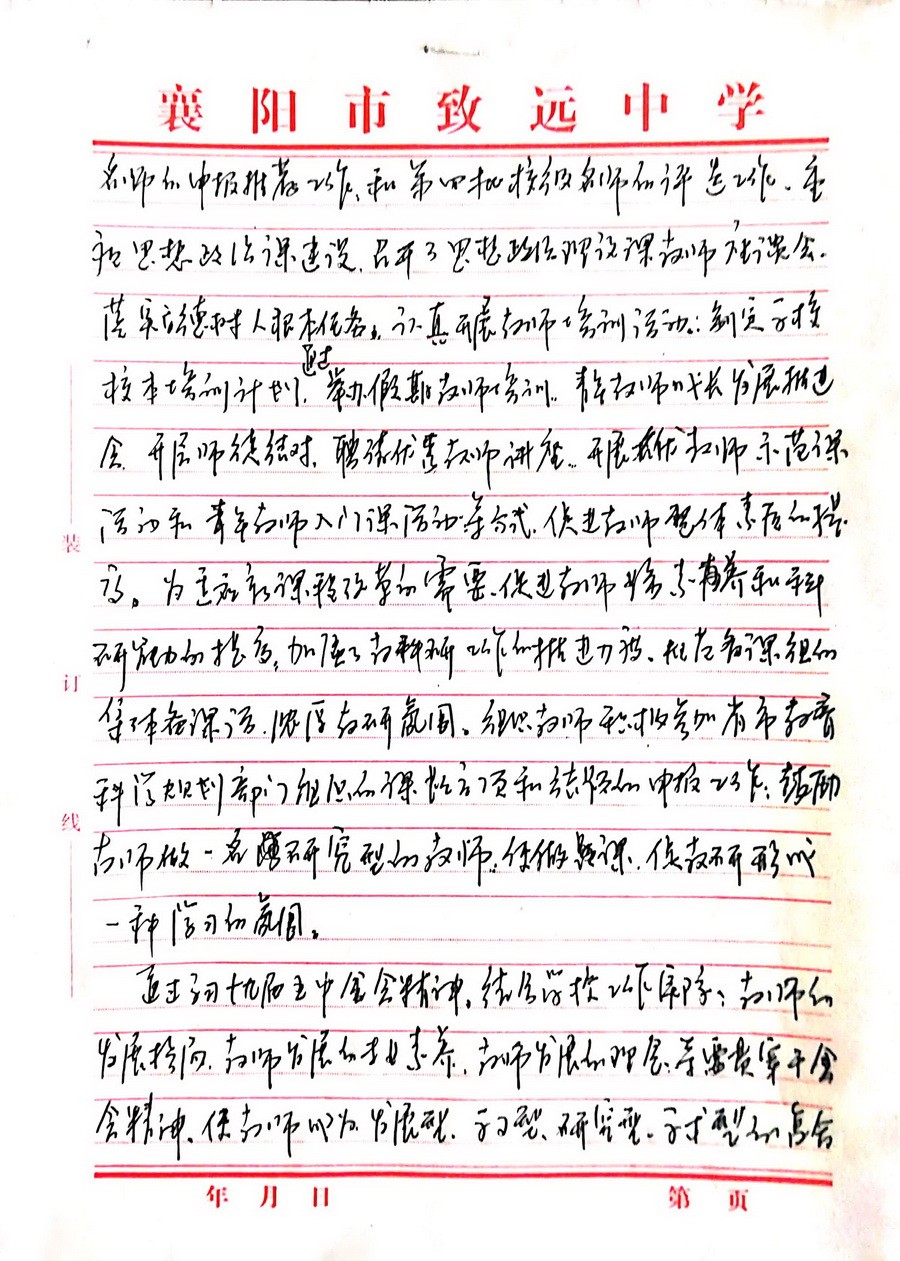 襄阳市致远中学
名师的申报推荐工作,和第四批校级名师的评选工作。重
视思想政治课建设,召开了思想政治理论课教师座谈会。
落实立德树人根本任务。认真开展教师培训活动:制定学校
通过
校本培训计划,举办假期教师培训。青年教师成长发展推进
会,开展师徒结对,聘请优秀教师讲座。开展优教师示范课
活动和青年教师入门课活动等方式,促进教师整体素质的提
高。为适应新课程改革的需要,促进教师综素养和科
研能力的提高,加强了教科研工作的推进力度。推广各课组的
集体备课活,浓厚教研氛围。组织教师积极参加省市教育
科学规划部门组织的课长立项和结题的申报工作;鼓励
教师做一名研究型的教师。使做题课,使教研形成
一种学习的氛围。
通过学习十九届五中全会精神,结合学校工作实际:教师的
发展指向,教师发展的专业素养,教师发展的理念,等要贯穿于全
会精神,使教师成为发展型、学习型、研究型、学术型的复合
装
订
线
年 月 日
第 页